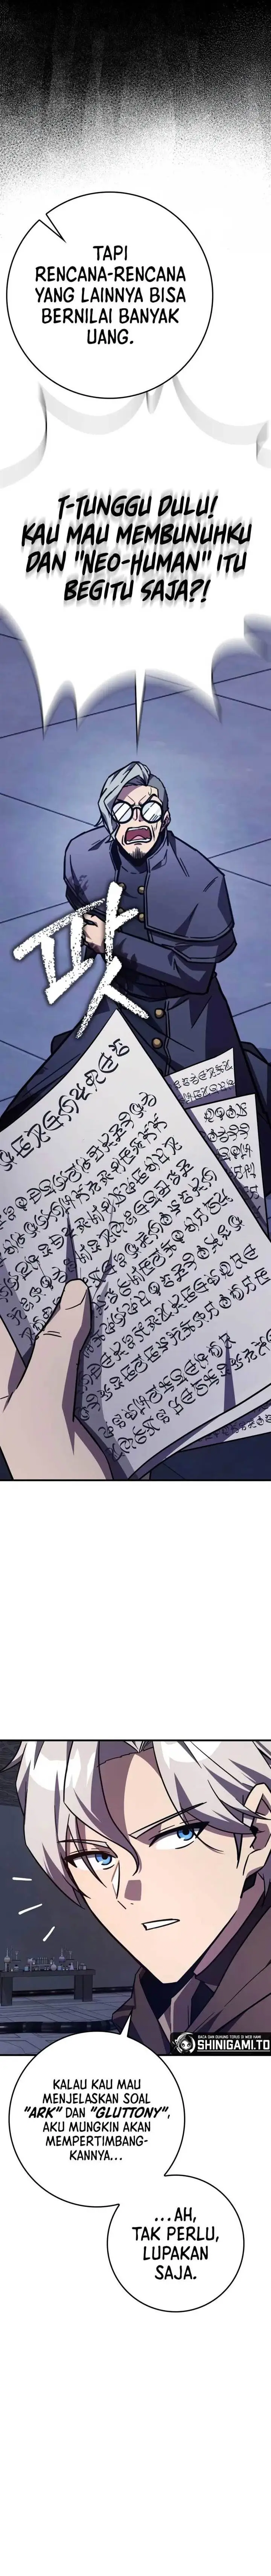 TAPI
RENCANA-RENCANA
YANG LAINNYA BISA
BERNILAI BANYAK
UANG.
T-TUNGGU DULU!
KAU MAU MEMBUNUHKU
DAN "NEO-HUMAN" ITU
BEGITU SAJA?!
팟
BACA DAN DUKUNG TERUS DI WEB KAMI
SHINIGAMI.TO
KALAU KAU MAU
MENJELASKAN SOAL
"ARK" DAN "GLUTTONY",
AKU MUNGKIN AKAN
MEMPERTIMBANG-
KANNYA...
...AH,
TAK PERLU,
LUPAKAN
SAJA.